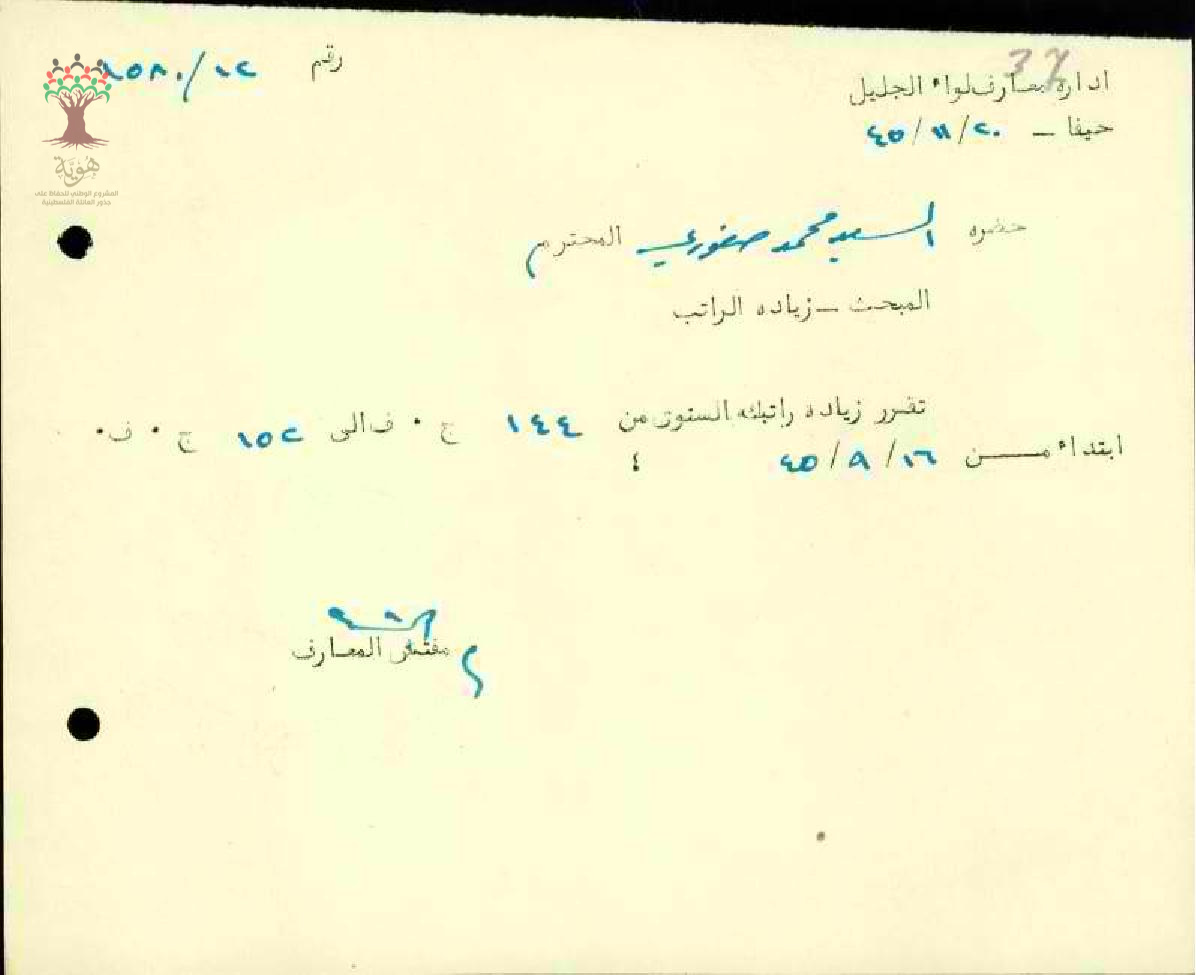 اداره معارف لواء الجليل
رقم ١٢/
حيفا – ٤٥/١١/٢٠
هُويَّة
المشروع الوطني للحفاظ على
جذور العائلة الفلسطينية
37
حضره السيد محمد صفوري المحترم
المبحث – زياده الراتب
تقرر زياده راتبكم السنوى من ١٤٤ ج ٠ ف الى ١٥٢ ج ٠ ف٠
ابتداء من ٤٥/٩/١٦ ؛
مفتش المعارف